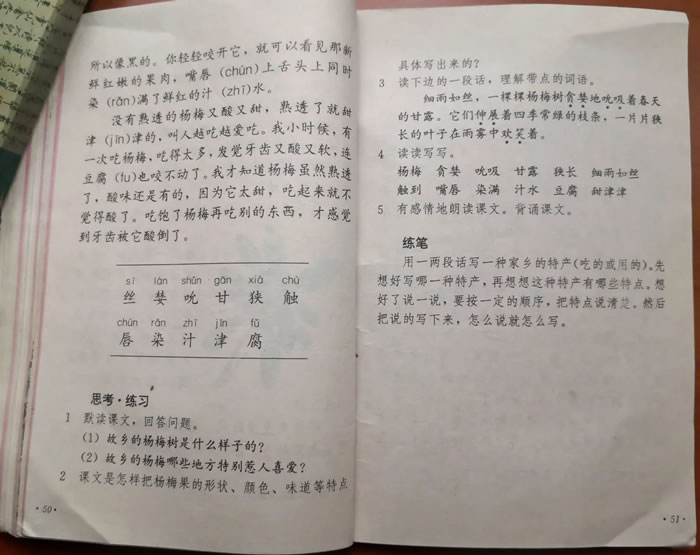 所以像黑的。你轻轻咬开它，就可以看见那新
鲜红嫩的果肉，嘴唇（chún）上舌头上同时
染（rǎn）满了鲜红的汁（zhī）水。
没有熟透的杨梅又酸又甜，熟透了就甜
津（jīn）津的，叫人越吃越爱吃。我小时候，有
一次吃杨梅，吃得太多，发觉牙齿又酸又软，连
豆腐（fu）也咬不动了。我才知道杨梅虽然熟透
了，酸味还是有的，因为它太甜，吃起来就不
觉得酸了。吃饱了杨梅再吃别的东西，才感觉
到牙齿被它酸倒了。
sī lán shǔn gān xiá chù
丝 婪 吮 甘 狭 触
chún rǎn zhī jīn fǔ
唇 染 汁 津 腐
思考·练习
1 默读课文，回答问题。
（1）故乡的杨梅树是什么样子的？
（2）故乡的杨梅哪些地方特别惹人喜爱？
2 课文是怎样把杨梅果的形状、颜色、味道等特点
·50·
具体写出来的？
3 读下边的一段话，理解带点的词语。
细雨如丝，一棵棵杨梅树贪婪地吮吸着春天
的甘露。它们伸展着四季常绿的枝条，一片片狭
长的叶子在雨雾中欢笑着。
4 读读写写。
杨梅 贪婪 吮吸 甘露 狭长 细雨如丝
触到 嘴唇 染满 汁水 豆腐 甜津津
5 有感情地朗读课文。背诵课文。
练笔
用一两段话写一种家乡的特产（吃的或用的）。先
想好写哪一种特产，再想想这种特产有哪些特点。想
好了说一说，要按一定的顺序，把特点说清楚。然后
把说的写下来，怎么说就怎么写。
·51·